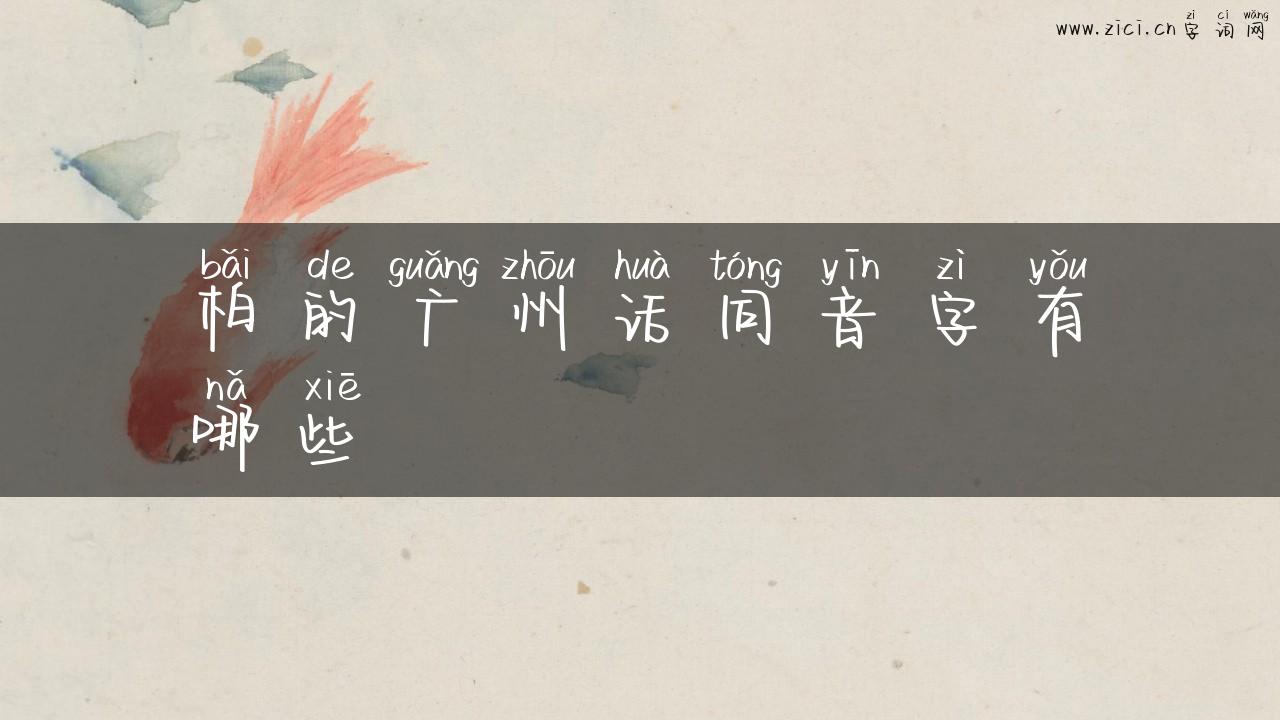 zì cí wǎng
www.zici.cn 字 词 网
bǎi de guǎng zhōu huà tóng yīn zì yǒu
柏 的 广 州 话 同 音 字 有
nǎ xiē
哪 些